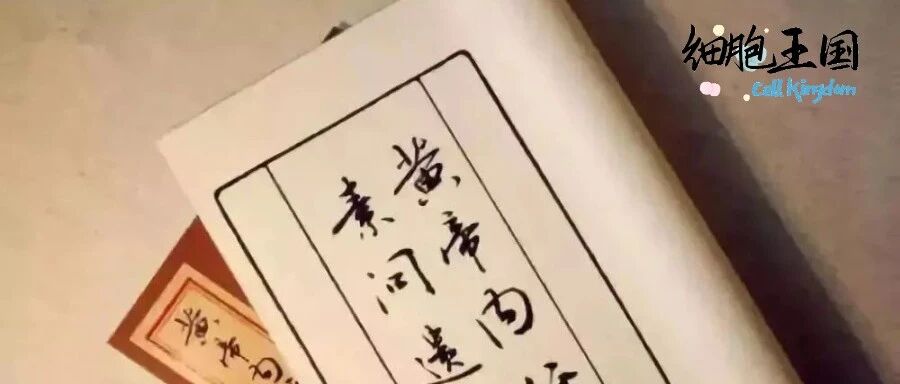 细胞王国
Cell Kingdom
黄帝内
素问遗
黄帝内